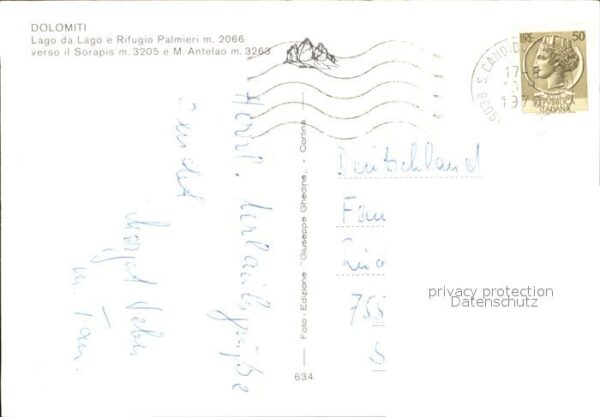 DOLOMITI
Lago da Lago e Rifugio Palmieri m. 2066
verso il Sorapis m. 3205 e M. Antelao m. 3263
LIRE 50
REPVBBLICA
ITALIANA
S. CAND
17-
197
Herzl. Urlaubsgrüße
sendet
Margot
u. Fam.
Foto - Edizione "Giuseppe Ghedina" - Cortina
634
Deutschland
Fam
755
privacy protection
Datenschutz